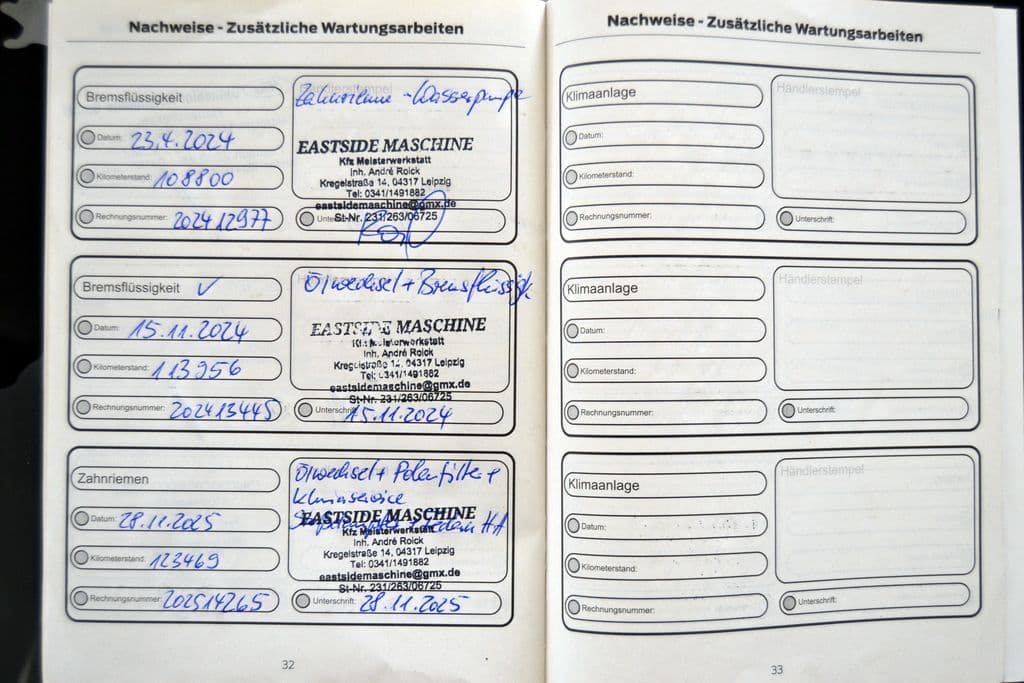 Nachweise - Zusätzliche Wartungsarbeiten
Bremsflüssigkeit
Händlerstempel
Zahnrieme - Wasserpumpe
Datum: 23.4.2024
Kilometerstand: 108800
Rechnungsnummer: 202412977
EASTSIDE MASCHINE
Kfz Meisterwerkstatt
Inh. André Roick
Kregelstraße 14, 04317 Leipzig
Tel: 0341/1491882
eastsidemaschine@gmx.de
St-Nr. 231/263/06725
Bremsflüssigkeit ✓
Ölwechsel + Bremsflüssigk
Datum: 15.11.2024
Kilometerstand: 113956
Rechnungsnummer: 202413445
EASTSIDE MASCHINE
Kfz Meisterwerkstatt
Inh. André Roick
Kregelstraße 14, 04317 Leipzig
Tel: 0341/1491882
eastsidemaschine@gmx.de
St-Nr. 231/263/06725
Unterschrift: 15.11.2024
Zahnriemen
Ölwechsel + Polenfilter +
Klimaservice
Datum: 28.11.2025
Kilometerstand: 123469
Rechnungsnummer: 202514265
+ Federn HA
EASTSIDE MASCHINE
Kfz Meisterwerkstatt
Inh. André Roick
Kregelstraße 14, 04317 Leipzig
Tel: 0341/1491882
eastsidemaschine@gmx.de
St-Nr. 231/263/06725
Unterschrift: 28.11.2025
32
Nachweise - Zusätzliche Wartungsarbeiten
Klimaanlage
Händlerstempel
Datum:
Kilometerstand:
Rechnungsnummer:
Unterschrift:
Klimaanlage
Händlerstempel
Datum:
Kilometerstand:
Rechnungsnummer:
Unterschrift:
Klimaanlage
Händlerstempel
Datum:
Kilometerstand:
Rechnungsnummer:
Unterschrift:
33